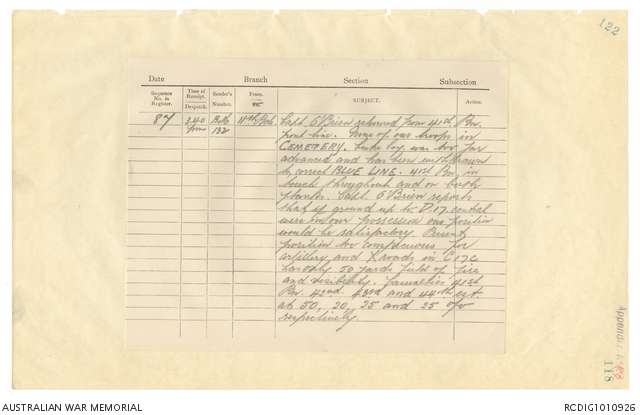 122
Date Branch Section Subsection
Sequence No. in Register. Time of Receipt. Despatch. Sender's Number. From. SUBJECT. Action.
87 2.40 pm 132 11th
Capt O'Brien returned from 41st Bn.
front line. None of our troops in
CEMETERY. was too far
advanced and has been withdrawn
to correct BLUE LINE. 41st Bn. in
touch throughout and on both
flanks. Capt O'Brien reports
that if ground up to D.17. central
were in our possession our position
would be satisfactory. Present
position too conspicuous for
artillery and X roads in
hardly 50 yards field of fire
and visibility. Casualties 41st
Bn. 42nd. 43rd and 44th est.
at 50, 20, 25 and 25 o/r
respectively.
Appendix
118
AUSTRALIAN WAR MEMORIAL
RCDIG1010926